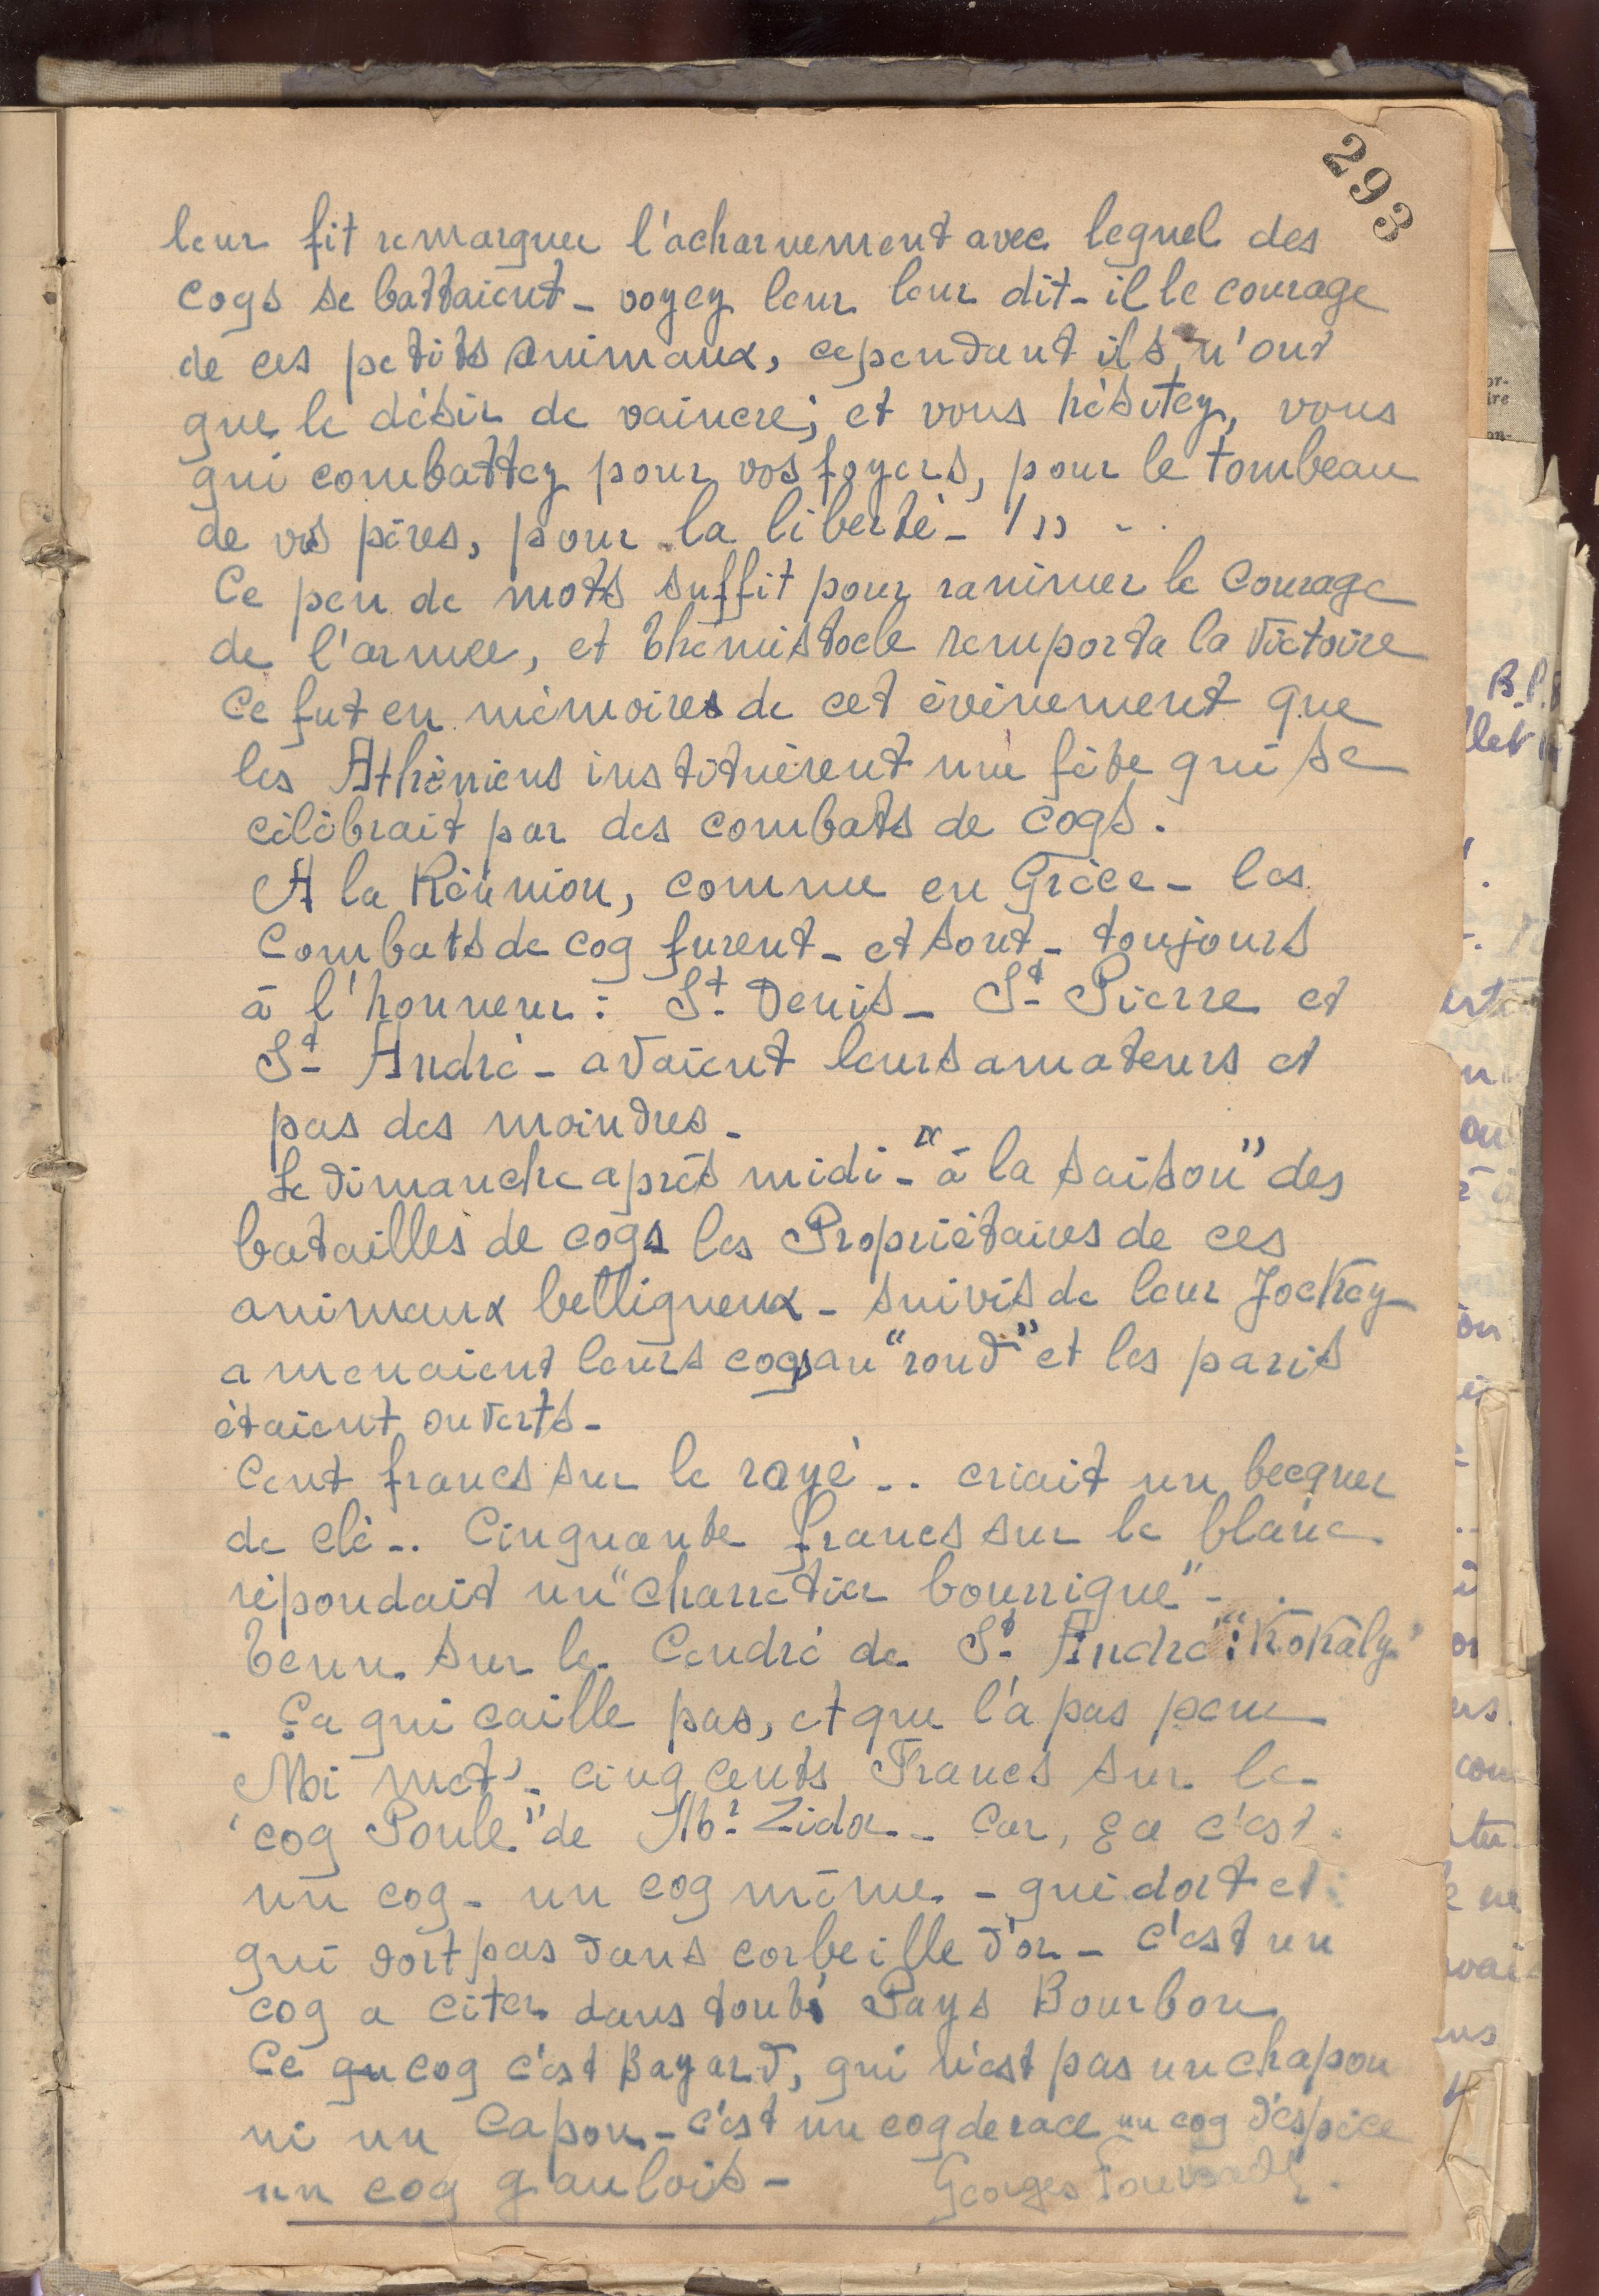 293
leur fit remarquer l'acharnement avec lequel des
coqs se battaient - voyez leur leur dit-il le courage
de ces petits animaux, cependant ils n'ont
que le désir de vaincre; et vous hésitez, vous
qui combattez pour vos foyers, pour le tombeau
de vos pères, pour la liberté - !"
Ce peu de mots suffit pour ranimer le courage
de l'armée, et Thémistocle remporta la victoire
Ce fut en mémoires de cet évènement que
les Athéniens instituèrent une fête qui se
célébrait par des combats de coqs.
A la Réunion, comme en Grèce - les
Combats de coq furent - et sont - toujours
à l'honneur : St Denis - St Pierre et
St André - avaient leurs amateurs et
pas des moindres -
Le dimanche après midi - "à la saison" des
batailles de coqs les Propriétaires de ces
animaux belliqueux - suivis de leur Jockey
amenaient leurs coqs au "rond" et les paris
étaient ouverts -
Cent francs sur le rayé .. criait un becqueur
de clé .. Cinquante francs sur le blanc
répondait un "charretier bourrique" -
tenu sur le Cendré de St André : "Kokaly"
- Ça qui caille pas, et que l'a pas peur
Moi met' - cinq cents Francs sur le
"coq Poule" de Mr Zidor - Car, ça c'est
un coq - un coq même - qui dort et
qui dort pas dans corbeille d'or - c'est un
coq a citer dans tout Pays Bourbon
Ce qu coq c'est Bayard, qui n'est pas un chapon
ni un Capon - c'est un coq de race un coq d'espèce
un coq gaulois - Georges
B.P.